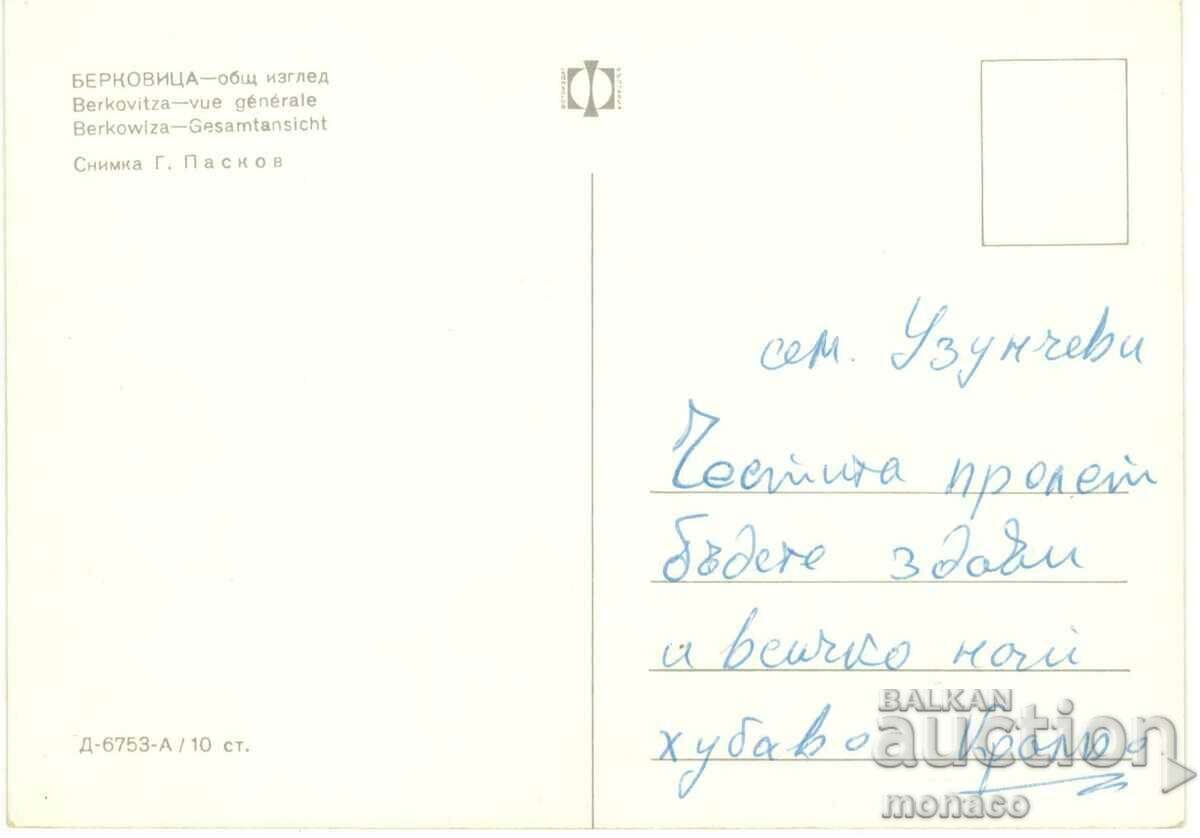 БЕРКОВИЦА—общ изглед
Berkovitza—vue générale
Berkowiza—Gesamtansicht
Снимка Г. Пасков
сем. Узунчеви
Честита пролет
бъдете здрави
и всичко най
хубаво
Д-6753-А / 10 ст.
BALKAN
auction
monaco